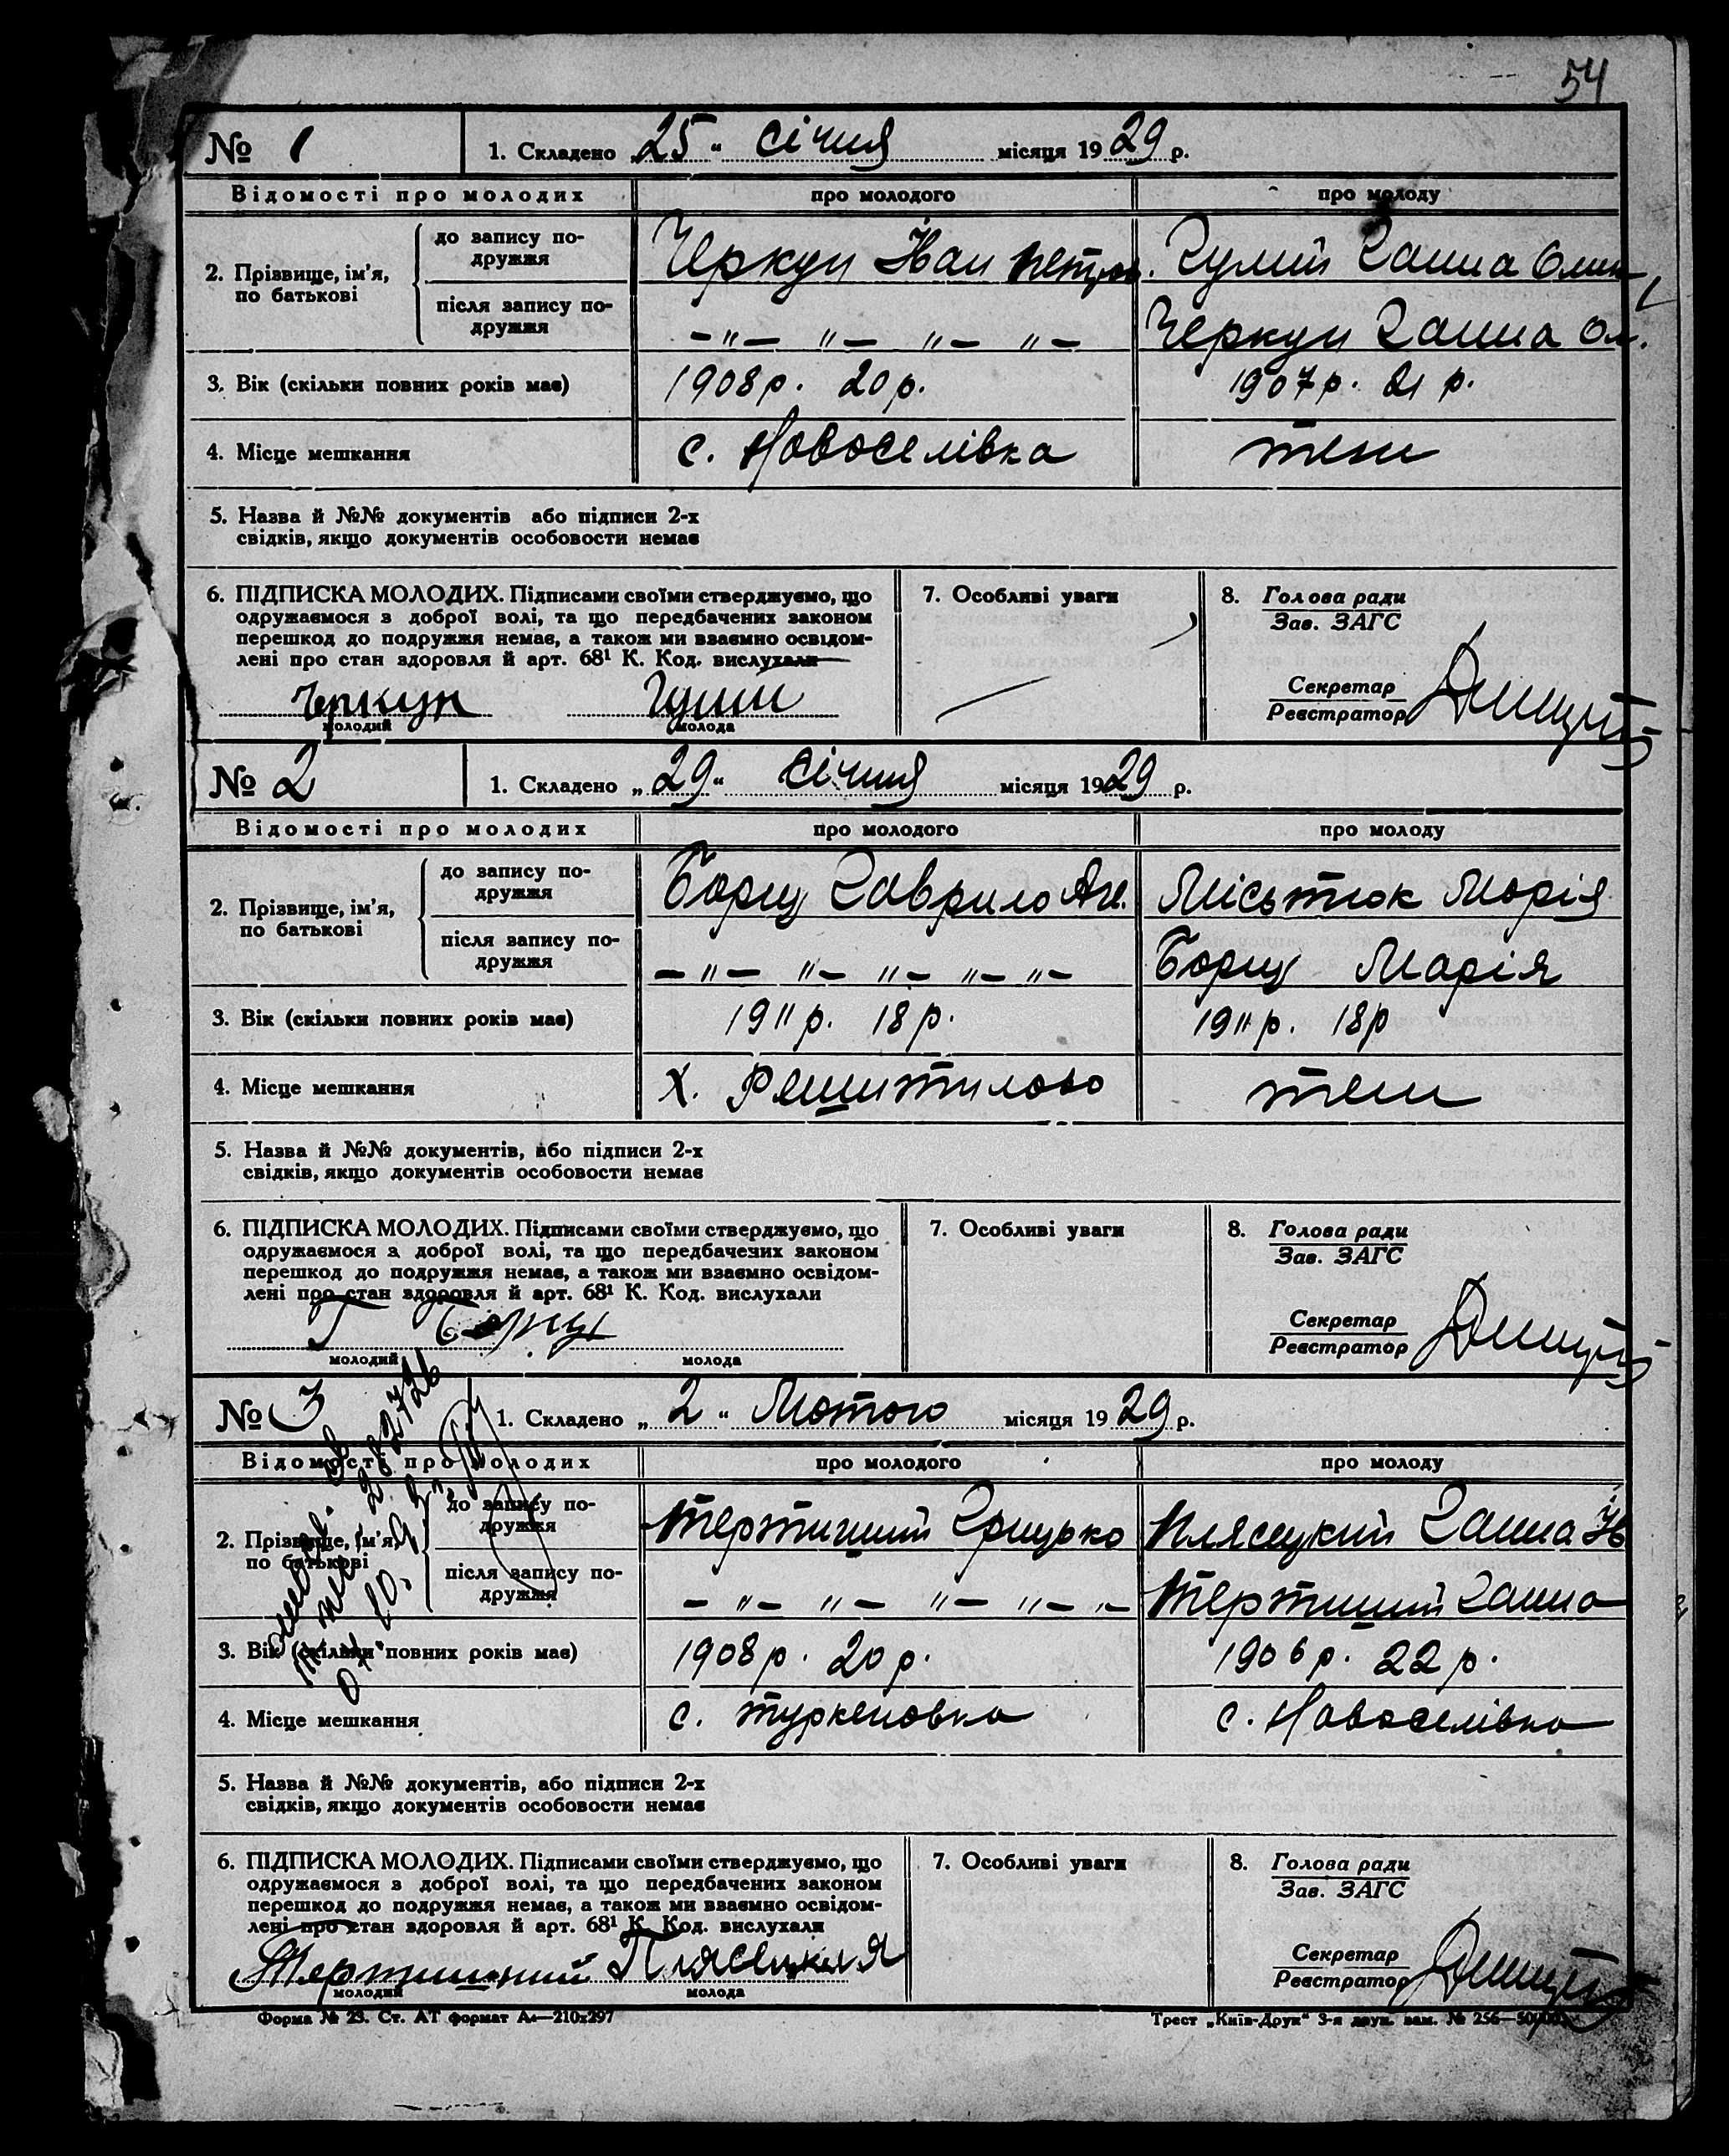 54
№ 1 1. Складено „25“ січня місяця 1929 р.
Відомості про молодих про молодого про молоду
2. Прізвище, ім’я, по батькові
до запису по-
дружжя
Черкун Іван Петров. Гулий Ганна
після запису по-
дружжя
-"- "- "- "- Черкун Ганна Ол.
3. Вік (скільки повних років має) 1908 р. 20 р. 1907 р. 21 р.
4. Місце мешкання с. Новоселівка теж
5. Назва й №№ документів або підписи 2-х
свідків, якщо документів особовости немає
6. ПІДПИСКА МОЛОДИХ. Підписами своїми стверджуємо, що
одружаємося з доброї волі, та що передбачених законом
перешкод до подружжя немає, а також ми взаємно освідом-
лені про стан здоровля й арт. 68¹ К. Код. вислухали
Черкун Гулий
молодий молода
7. Особливі уваги
8. Голова ради
Зав. ЗАГС
Секретар
Реєстратор
№ 2 1. Складено „29“ січня місяця 1929 р.
Відомості про молодих про молодого про молоду
2. Прізвище, ім’я,
по батькові
до запису по-
дружжя
Борщ Гаврило Ан. Місьтюк Марія
після запису по-
дружжя
-"- "- "- "- "- Борщ Марія
3. Вік (скільки повних років має) 1911 р. 18 р. 1911 р. 18 р
4. Місце мешкання х. Решитилово теж
5. Назва й №№ документів, або підписи 2-х
свідків, якщо документів особовости немає
6. ПІДПИСКА МОЛОДИХ. Підписами своїми стверджуємо, що
одружаємося з доброї волі, та що передбачених законом
перешкод до подружжя немає, а також ми взаємно освідом-
лені про стан здоровля й арт. 68¹ К. Код. вислухали
Г Борщ
молодий молода
7. Особливі уваги
8. Голова ради
Зав. ЗАГС
Секретар
Реєстратор
№ 3 1. Складено „2“ Лютого місяця 1929 р.
Відомості про молодих про молодого про молоду
2. Прізвище, ім’я,
по батькові
до запису по-
дружжя
Тертишний Грицько Плясецкий Ганна
після запису по-
дружжя
- "- "- "- "- "- Тертишний Ганна
3. Вік (скільки повних років має) 1908 р. 20 р. 1906 р. 22 р.
4. Місце мешкання с. Туркеновка с. Новоселівка
5. Назва й №№ документів, або підписи 2-х
свідків, якщо документів особовости немає
6. ПІДПИСКА МОЛОДИХ. Підписами своїми стверджуємо, що
одружаємося з доброї волі, та що передбачених законом
перешкод до подружжя немає, а також ми взаємно освідом-
лені про стан здоровля й арт. 68¹ К. Код. вислухали
Тертишний Плясецкая
молодий молода
7. Особливі уваги
8. Голова ради
Зав. ЗАГС
Секретар
Реєстратор
Форма № 23. Ст. АТ формат А₄—210х297 Трест „Київ-Друк“ 3-я друк. зам. № 256—